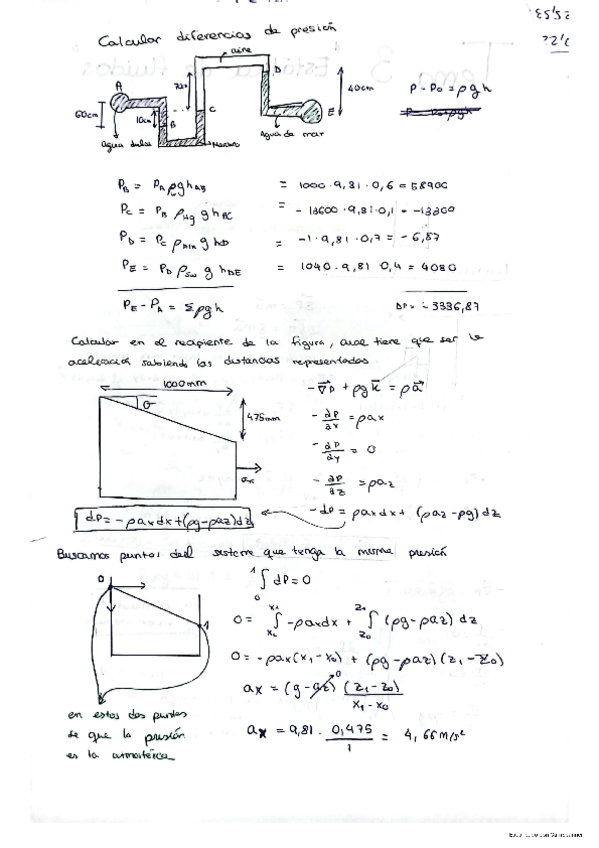 Calcular diferencias de presión
aire
A
60cm
10cm
B
C
D
40cm
E
Agua dulce
Agua de mar
P - P0 = ρgh
PB = PA ρghAB = 1000 · 9,81 · 0,6 =
PC = PB ρHg g hBC = - 13600 · 9,81 · 0,1 = -13300
PD = PC g hD = -1 · 9,81 · 0,7 = - 6,87
PE = PD ρSW g hDE = 1040 · 9,81 · 0,4 = 4080
PE - PA = Σρgh
ΔP = - 3336,87
Calcular en el recipiente de la figura, cual tiene que ser la
aceleración sabiendo las distancias representadas
1000mm
θ
475mm
ax
-∇P + ρgk = ρa
- ∂P/∂x = ρax
- ∂P/∂y = 0
- ∂P/∂z = ρaz
dP = - ρaxdx + (ρg-ρaz)dz
- dP = ρaxdx + (ρaz - ρg) dz
Buscamos puntos del sistema que tenga la misma presión
0
1
∫ dP = 0
0 = ∫ -ρaxdx + ∫ (ρg - ρaz) dz
0 = - ρax(x1 - x0) + (ρg - ρaz) (z1 - z0)
ax = (g - az) (z1 - z0) / x1 - x0
en estos dos puntos
se que la presión
es la atmosférica
ax = 9,81 · 0,475 / 1 = 4,66 m/s²